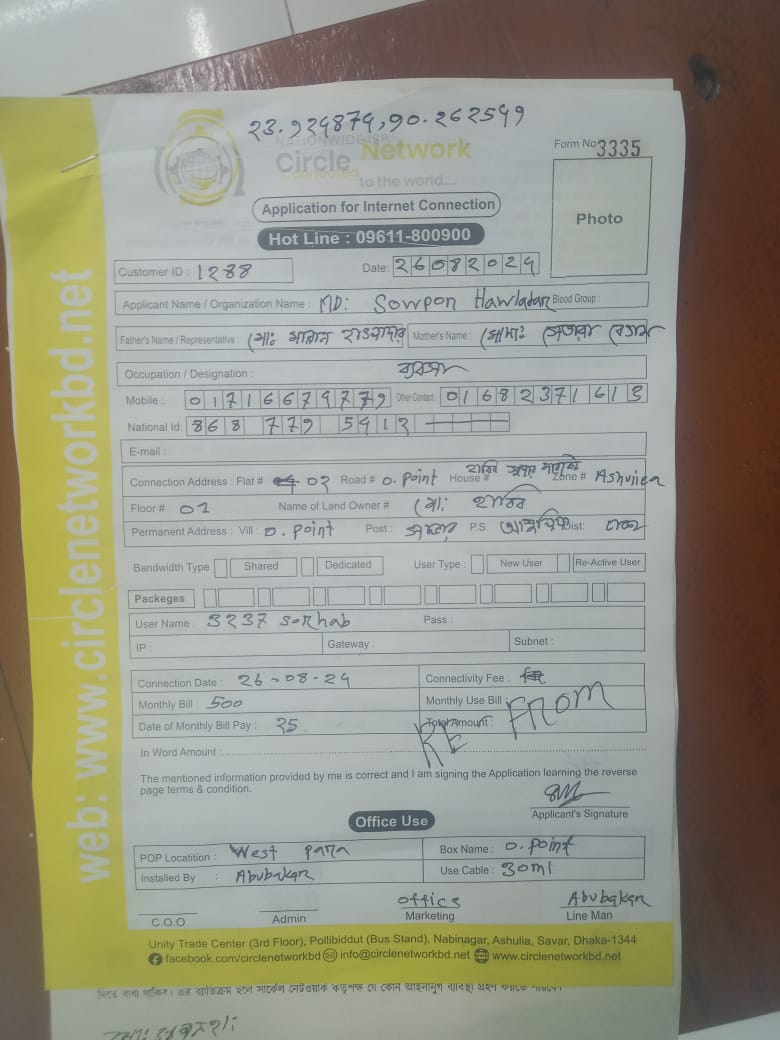 23.924874,90.262549
NATIONWIDE ISP
Circle Network
Connected to the world....
Form No 3335
Photo
Application for Internet Connection
Hot Line : 09611-800900
Customer ID : 1288 Date: 26082024
Applicant Name / Organization Name : MD: Sowpon Hawladar Blood Group :
Father's Name / Representative : মো: হাওলাদার Mother's Name : মোসা: বেগম
Occupation / Designation : ব্যবসা
Mobile : 01716679779 Other Contact : 01682371613
National Id: 868 779 5412
E-mail :
Connection Address : Flat # 02 Road # 0. Point House # Zone # Ashuliea
Floor # 01 Name of Land Owner # মো: হাবিব
Permanent Address : Vill : 0. Point Post : P.S. Dist: ঢাকা
Bandwidth Type Shared Dedicated User Type : New User Re-Active User
Packeges
User Name : 3237 sorhab Pass :
IP : Gateway : Subnet :
Connection Date : 26-08-24 Connectivity Fee :
Monthly Bill : 500 Monthly Use Bill :
Date of Monthly Bill Pay : 25 Total Amount :
RE FROM
In Word Amount :
The mentioned information provided by me is correct and I am signing the Application learning the reverse
page terms & condition.
Applicant's Signature
Office Use
POP Locatition : West para Box Name : 0. Point
Installed By : Abubakar Use Cable : 30ml
office Abubakar
C.O.O Admin Marketing Line Man
Unity Trade Center (3rd Floor), Pollibiddut (Bus Stand), Nabinagar, Ashulia, Savar, Dhaka-1344
facebook.com/circlenetworkbd info@circlenetworkbd.net www.circlenetworkbd.net
web: www.circlenetworkbd.net
দিতে বাধ্য থাকিব। এর ব্যতিক্রম হলে সার্কেল নেটওয়ার্ক কতৃপক্ষ যে কোন আইনানুগ ব্যবস্থা গ্রহণ করতে পারিবে।